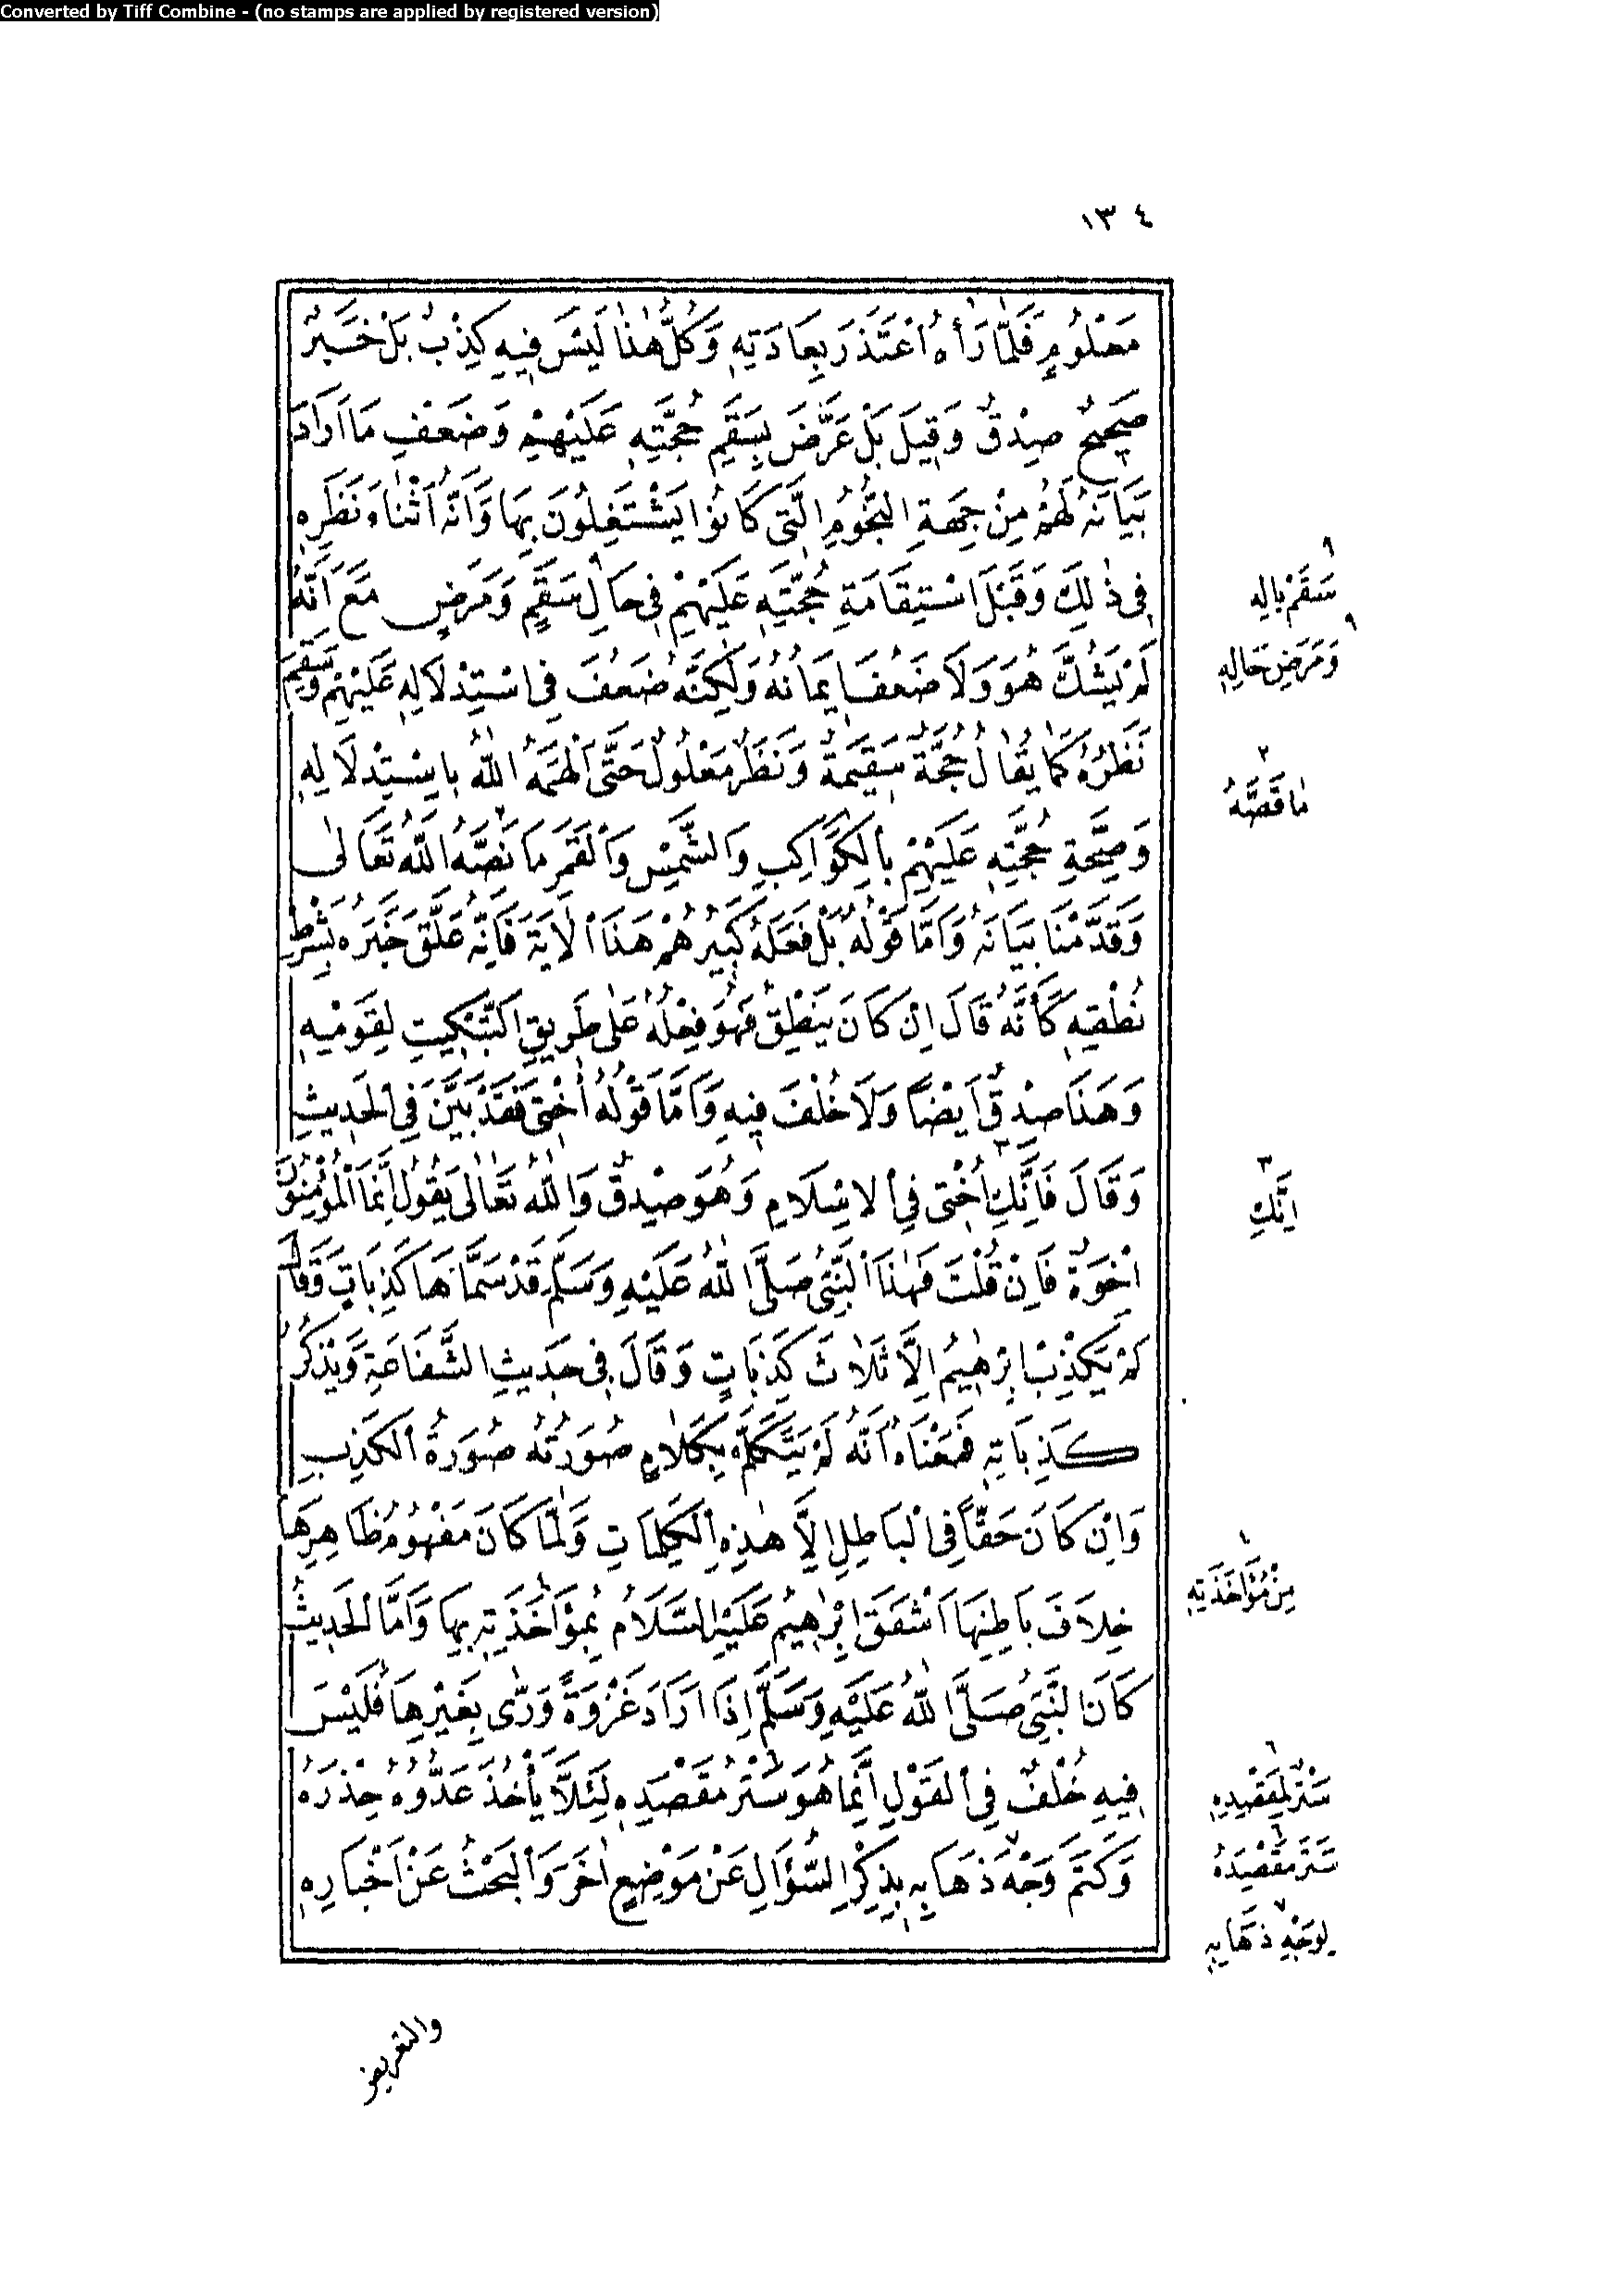 Converted by Tiff Combine - (no stamps are applied by registered version)
١٣٤
مَعْلُومٍ فَلَمَّا رَأٰهُ اعْتَذَرَ بِعَادَتِهِ وَكُلُّ هٰذَا لَيْسَ فِيهِ كِذْبٌ بَلْ خَبَرٌ
صَحِيحٌ صِدْقٌ وَقِيلَ بَلْ عَرَّضَ بِسَقَمِ حُجَّتِهِ عَلَيْهِمْ وَضَعْفِ مَا اَرَادَ
بَيَانَهُ لَهُمْ مِنْ جِهَةِ النُّجُومِ الَّتِى كَانُوا يَشْتَغِلُونَ بِهَا وَاَنَّهُ اَثْنَاءَ نَظَرِهِ
فِى ذٰلِكَ وَقَبْلَ اسْتِقَامَةِ حُجَّتِهِ عَلَيْهِمْ فِى حَالِ سَقَمٍ وَمَرَضٍ مَعَ اَنَّهُ
لَمْ يَشُكَّ هُوَ وَلَا ضَعُفَ اِيمَانُهُ وَلٰكِنَّهُ ضَعُفَ فِى اسْتِدْلَالِهِ عَلَيْهِمْ وَسَقِمَ
نَظَرُهُ كَمَا يُقَالُ حُجَّةٌ سَقِيمَةٌ وَنَظَرٌ مَعْلُولٌ حَتَّى اَلْهَمَهُ اللّٰهُ بِاِسْتِدْلَالِهِ
وَصِحَّةِ حُجَّتِهِ عَلَيْهِمْ بِالْكَوَاكِبِ وَالشَّمْسِ وَالْقَمَرِ مَا نَصَّهُ اللّٰهُ تَعَالٰى
وَقَدَّمْنَا بَيَانَهُ وَاَمَّا قَوْلُهُ بَلْ فَعَلَهُ كَبِيرُهُمْ هَذَا الْاٰيَةَ فَاِنَّهُ عَلَّقَ خَبَرَهُ بِشَرْطِ
نُطْقِهِ كَأَنَّهُ قَالَ اِنْ كَانَ يَنْطِقُ فَهُوَ فِعْلُهُ عَلٰى طَرِيقِ التَّبْكِيتِ لِقَوْمِهِ
وَهَذَا صِدْقٌ اَيْضًا وَلَا خُلْفَ فِيهِ وَاَمَّا قَوْلُهُ اُخْتِى فَقَدْ بَيَّنَ فِى الْحَدِيثِ
وَقَالَ فَاِنَّكِ اُخْتِى فِى الْاِسْلَامِ وَهُوَ صِدْقٌ وَاللّٰهُ تَعَالٰى يَقُولُ اِنَّمَا الْمُؤْمِنُونَ
اِخْوَةٌ فَاِنْ قُلْتَ فَهٰذَا النَّبِىُّ صَلَّى اللّٰهُ عَلَيْهِ وَسَلَّمَ قَدْ سَمَّاهَا كَذِبَاتٍ وَقَالَ
لَمْ يَكْذِبْ اِبْرٰهِيمُ اِلَّا ثَلَاثَ كَذِبَاتٍ وَقَالَ فِى حَدِيثِ الشَّفَاعَةِ وَيَذْكُرُ
كَذِبَاتِهِ فَمَعْنَاهُ اَنَّهُ لَمْ يَتَكَلَّمْ بِكَلَامٍ صُورَتُهُ صُورَةُ الْكَذِبِ
وَاِنْ كَانَ حَقًّا فِى الْبَاطِنِ اِلَّا هٰذِهِ الْكَلِمَاتِ وَلَمَّا كَانَ مَفْهُومُ ظَاهِرِهَا
خِلَافَ بَاطِنِهَا اَشْفَقَ اِبْرٰهِيمُ عَلَيْهِ السَّلَامُ بِمُؤَاخَذَتِهِ بِهَا وَاَمَّا الْحَدِيثُ
كَانَ النَّبِىُّ صَلَّى اللّٰهُ عَلَيْهِ وَسَلَّمَ اِذَا اَرَادَ غَزْوَةً وَرّٰى بِغَيْرِهَا فَلَيْسَ
فِيهِ خُلْفٌ فِى الْقَوْلِ اِنَّمَا هُوَ سَتْرُ مَقْصَدِهِ لِئَلَّا يَأْخُذَ عَدُوُّهُ حِذْرَهُ
وَكَتْمُ وَجْهِ ذَهَابِهِ بِذِكْرِ السُّؤَالِ عَنْ مَوْضِعٍ اٰخَرَ وَالْبَحْثِ عَنْ اَخْبَارِهِ
١
سَقَمْ بَالِهِ
١
وَمَرَضِ حَالِهِ
٢
مَا قَصَّهُ
٣
اِنَّكِ
٤
مِنْ مُؤَاخَذَتِهِ
٦
سَتْرٌ لِمَقْصِدِهِ
٦
سَتَرَ مَقْصِدَهُ
٧
لِوَجْهِ ذَهَابِهِ
والتعريض